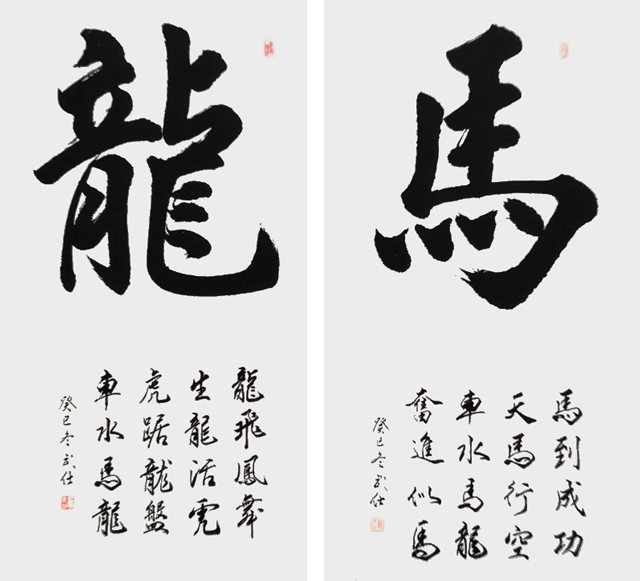 龍
龍飛鳳舞
生龍活虎
虎踞龍盤
車水馬龍
癸巳冬武仕
馬
馬到成功
天馬行空
車水馬龍
奮進似馬
癸巳冬武仕